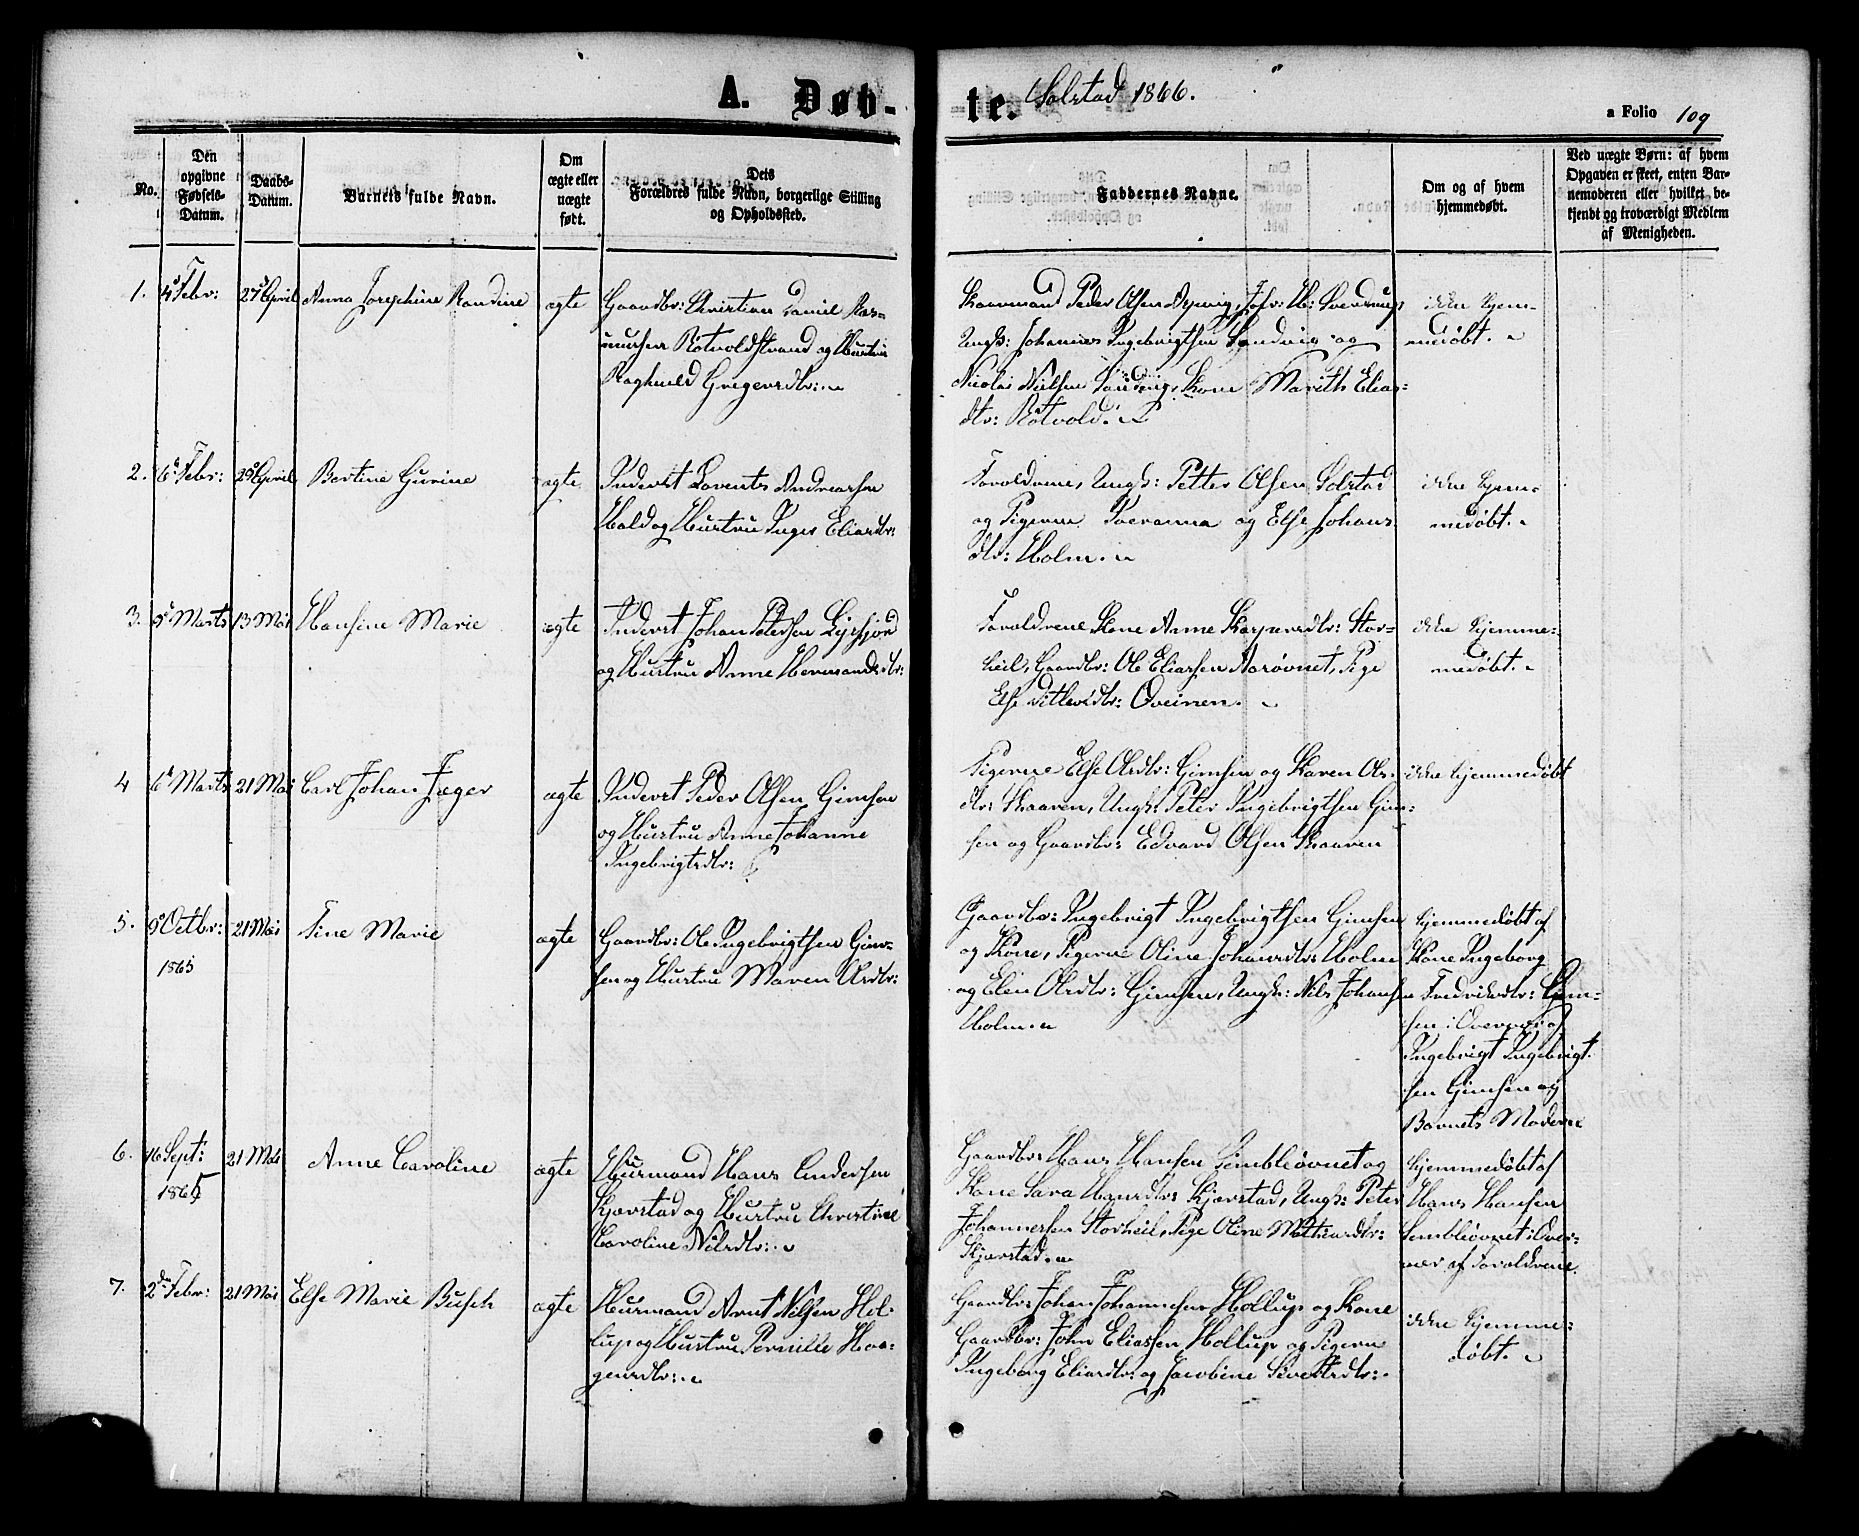 A. Døb-
te. Solstad 1866.
a Folio 109
No.
Den
opgivne
Fødsels-
Datum.
Daabs-
Datum.
Barnets fulde Navn.
Om
ægte eller
uægte
født.
Dets
Forældres fulde Navn, borgerlige Stilling
og Opholdssted.
Faddernes Navne.
Om og af hvem
hjemmedøbt.
Ved uægte Børn: af hvem
Opgaven er skeet, enten Bar-
nemoderen eller hvilket be-
kjendt og troværdigt Medlem
af Menigheden.
1. 4 Febr: 27 April Anna Josephine Randine ægte
Gaardbr: Christian Daniel Ras-
mussen Rötvoldstrand og Hustru
Raghnild Gregersdtr:
Peder Olsen
Ungk: Johannes Ingebrigtsen Sandvig og
Nicolai Nielsen Sandvig, Kone Marith Elias-
dtr: Rötvold.
ikke hjem-
medøbt.
2. 6 Febr: 29 April Bertine Gurine ægte
Inderst Lorents Andreassen
Hald og Hustru Inger Eliasdtr:
Forældrene, Ungk: Petter Olsen Solstad
og Pigerne og Else Johans-
dtr: Holm.
ikke hjem-
medøbt.
3. 5 Marts 13 Mai Hansine Marie ægte
Inderst Johan Petersen
og Hustru Anne Hermansdtr:
Forældrene Kone Anne Kaspersdtr: Stor-
heil, Gaardbr: Ole Eliassen Aarövnet, Pige
Else Ditlevsdtr: Qveinen.
ikke hjemme-
medøbt.
4 6 Marts 21 Mai Carl Johan Jæger ægte
Inderst Peder Olsen Gimsen
og Hustru Anne Johanne
Ingebrigtsdtr:
Pigerne Else Olsdtr: Gimsen og Karen Ols-
dtr: Skaaren, Ungk: Peter Ingebrigtsen Gim-
sen og Gaardbr: Edvard Olsen Skaaren
ikke hjemmedøbt
5. 9 Octbr: 1865 21 Mai Tine Marie ægte
Gaardbr: Ole Ingebrigtsen Gim-
sen og Hustru Maren Olsdtr:
Gaardbr: Ingebrigt Ingebrigtsen Gimsen
og Kone, Pigerne Oline Johansdtr: Holm
og Elen Olsdtr: Gimsen, Ungk: Nils Johansen
Holm.
hjemmedøbt af
Kone Ingeborg
Fredriksdtr: Gim-
sen i Overvær af
Ingebrigt Ingebrigt-
sen Gimsen og
Barnets Moder
6. 16 Sept: 1865 21 Mai Anne Caroline ægte
Husmand Hans Andersen
Kjærstad og Hustru Christine
Karoline Nilsdtr:
Gaardbr: Hans Hansen Simbleövnet og
Kone Sara Hansdtr: Kjærstad, Ungk: Peter
Johannessen Storheil, Pige Oline Mathiasdtr:
Kjærstad.
hjemmedøbt af
Hans Hansen
Sembleövnet i Over-
vær af Forældrene.
7. 2 Febr: 21 Mai Else Marie Busch ægte
Husmand Arnt Nilsen Hol-
lup og Hustru Pernille Haa-
gensdtr:
Gaardbr: Johan Johannesen Hollup og Kone
Gaardbr: John Eliassen Hollup og Pigerne
Ingeborg Eliasdtr: og Jacobine Sivertsdtr:
ikke hjemme-
døbt.